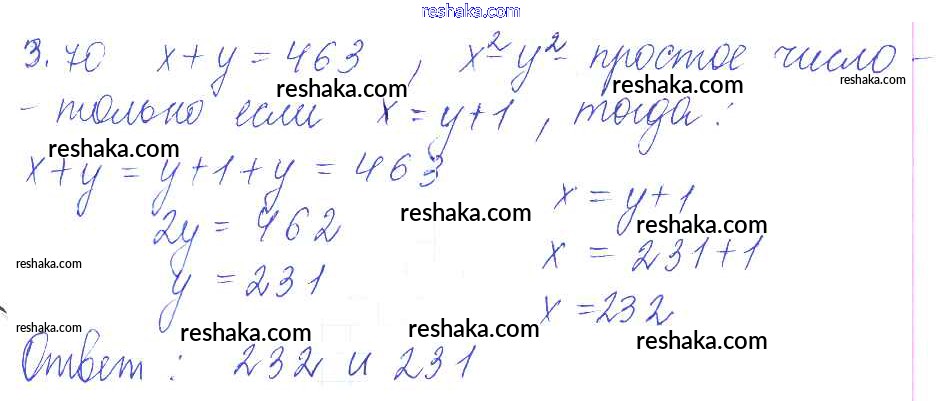 reshaka.com
3.70 x + y = 463 , x² - y² - простое число -
reshaka.com reshaka.com reshaka.com
- только если x = y + 1 , тогда :
reshaka.com reshaka.com
x + y = y + 1 + y = 463
x = y + 1
reshaka.com reshaka.com
2y = 462
x = 231 + 1
reshaka.com reshaka.com
y = 231
x = 232
reshaka.com reshaka.com reshaka.com reshaka.com
Ответ : 232 и 231